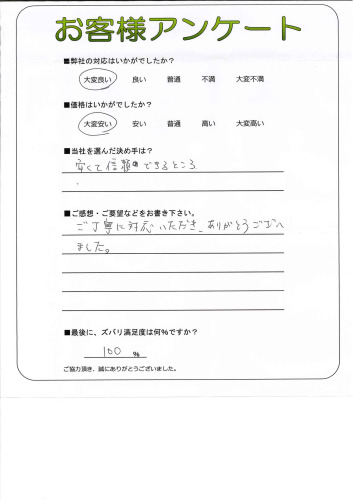 お客様アンケート
■弊社の対応はいかがでしたか?
大変良い 良い 普通 不満 大変不満
■価格はいかがでしたか?
大変安い 安い 普通 高い 大変高い
■当社を選んだ決め手は?
安くて信頼できるところ
■ご感想・ご要望などをお書き下さい。
ご丁寧に対応いただき、ありがとうござい
ました。
■最後に、ズバリ満足度は何%ですか?
100 %
ご協力頂き、誠にありがとうございました。